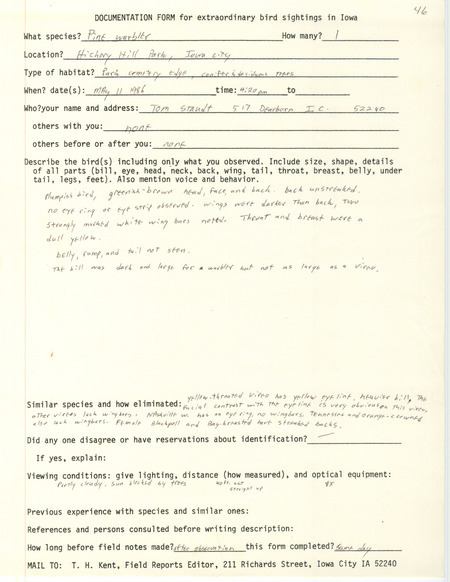 46
DOCUMENTATION FORM for extraordinary bird sightings in Iowa
What species? Pine warbler How many? 1
Location? Hickory Hill Park, Iowa City
Type of habitat? Park cemetery edge, conifer & deciduous trees
When? date(s): May 11 1986 time: 4:20 pm to
Who? your name and address: Tom Staudt 517 Dearborn I.C. 52240
others with you: none
others before or after you: none
Describe the bird(s) including only what you observed. Include size, shape, details
of all parts (bill, eye, head, neck, back, wing, tail, throat, breast, belly, under
tail, legs, feet). Also mention voice and behavior.
Plumpish bird, greenish-brown head, face, and back. back unstreaked.
no eye ring or eye strip observed. wings were darker than back, two
strongly marked white wing bars noted. Throat and breast were a
dull yellow.
belly, rump, and tail not seen.
The bill was dark and large for a warbler but not as large as a vireo.
Similar species and how eliminated: yellow-throated vireo has yellow eye ring, heavier bill, The
facial contrast with the eye ring is very obvious on this vireo,
other vireos lack wingbars. Nashville w. has an eye ring, no wingbars. Tennessee and orange-crowned
also lack wingbars. Female Blackpoll and Bay-breasted have streaked backs.
Did any one disagree or have reservations about identification?
If yes, explain:
Viewing conditions: give lighting, distance (how measured), and optical equipment:
Partly cloudy. Sun blocked by trees straight up 8X
Previous experience with species and similar ones:
References and persons consulted before writing description:
How long before field notes made? after observation this form completed? same day
MAIL TO: T. H. Kent, Field Reports Editor, 211 Richards Street, Iowa City IA 52240